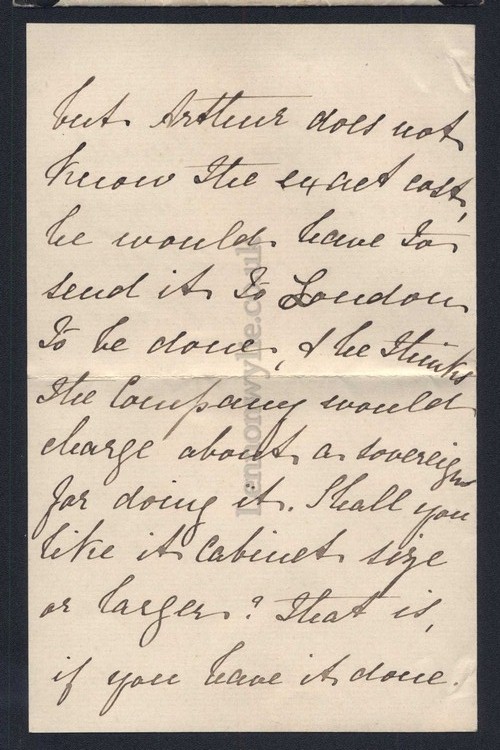 but Arthur does not
know the exact cost,
he would have to
send it to London
to be done, & he thinks
the Company would
charge about a sovereign
for doing it. Shall you
like it Cabinet size
or larger? That is,
if you have it done.